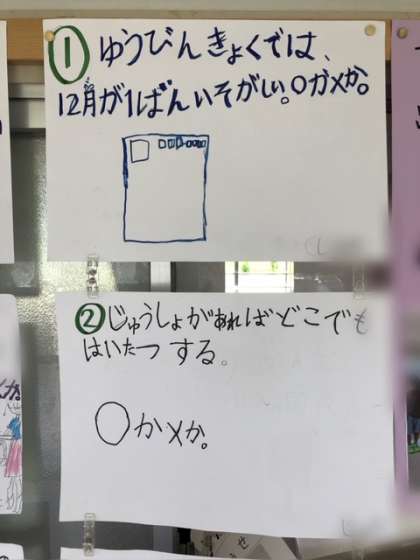 ① ゆうびんきょくでは、
12月が1ばんいそがしい。○か×か。
② じゅうしょがあればどこでも
はいたつ する。
○か×か。